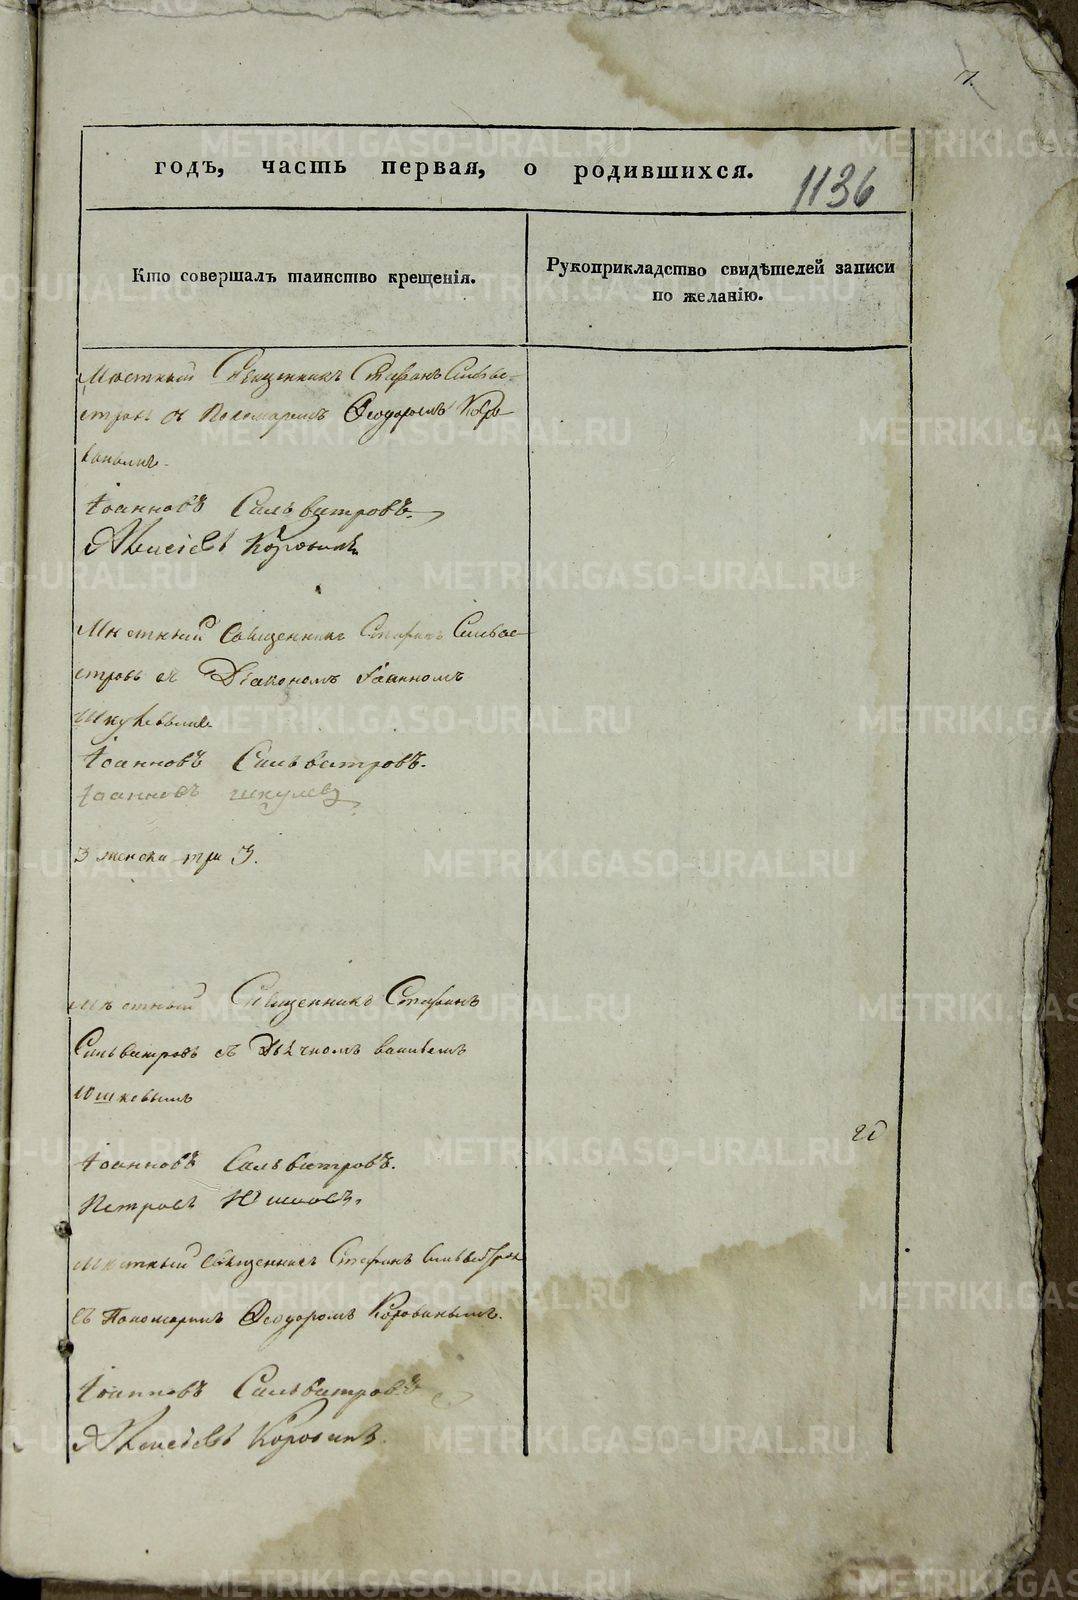 7.
годъ, часть первая, о родившихся. 1136
Кто совершалъ таинство крещенія.
Рукоприкладство свидѣтелей записи
по желанію.
Мѣстный Священникъ Стефанъ Сильве-
стровъ съ Пономаремъ Ѳеодоромъ Коро-
винымъ.
Іоанновъ Сильвестровъ.
Алексіевъ Коровинъ
Мѣстный Священникъ Стефанъ Сильве-
стровъ съ Діакономъ Іоанномъ
Шкулевымъ
Іоанновъ Сильвестровъ.
Іоанновъ Шкулевъ
3 женска три 3.
Мѣстный Священникъ Стефанъ
Сильвестровъ съ Дьячкомъ
Юшковымъ
Іоанновъ Сильвестровъ.
Петровъ Юшковъ.
Мѣстный Священникъ Стефанъ Сильвестровъ
съ Пономаремъ Ѳеодоромъ Коровинымъ.
Іоанновъ Сильвестровъ
Алексіевъ Коровинъ.
METRIKI.GASO-URAL.RU